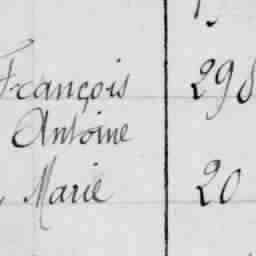 François 298
Antoine
Marie 20